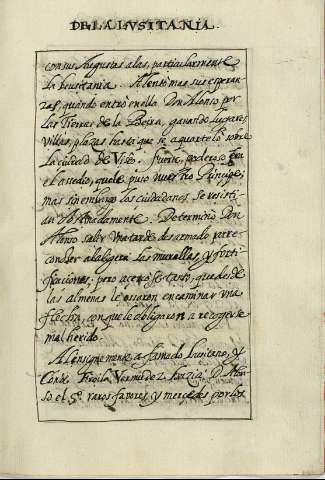 DE LA LVSITANIA.
con sus Augustas alas, particularmente
la Lusitania. Alentò mas sus esperan-
zas, quando entrò en ella Don Alonso por
las Tierras de la Beira, ganando lugares
villas, plazas hasta que se aquartelò sobre
la ciudad de Viseo. fuerte, poderoso
el assedio, que le puso nuestro Principe,
mas sin embargo los ciudadanos se resistian
Determinò Don
Alonso salir una tarde desarmado a reco-
nocer a la ligera las murallas, y forti-
ficaciones: pero acercòse tanto, que desde
las almenas le osaron encaminar una
flecha, con que le obligaron a recogerse
mal herido.
Al insigne mente afamado Lusitano, el
Conde Froila Vermudez hazia D. Alon-
so el 5º. raros favores, y mercedes por los